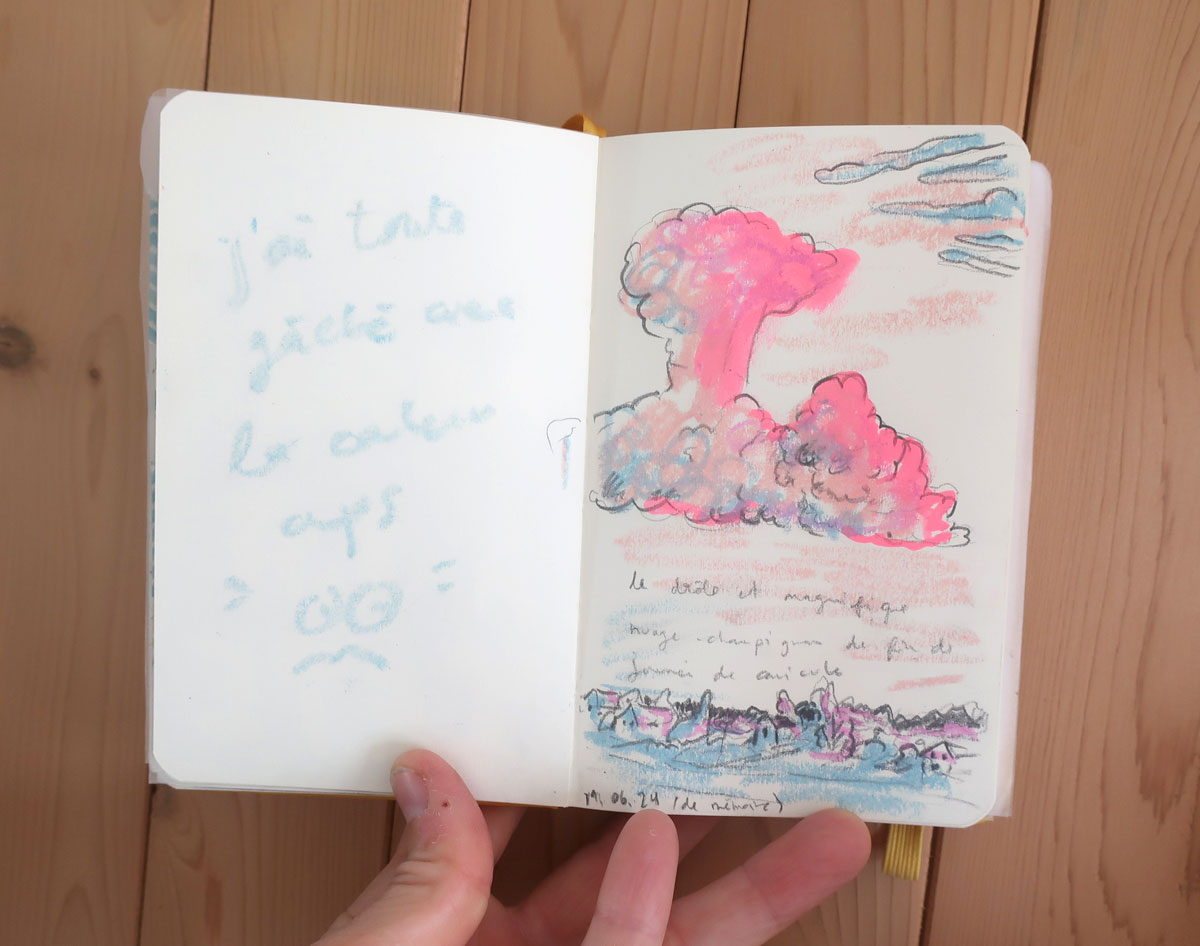 j'ai toute
gâché avec
la couleur
oups
le drôle et magnifique
nuage-champignon de fin de
journée de canicule
19.06.24 (de mémoire)